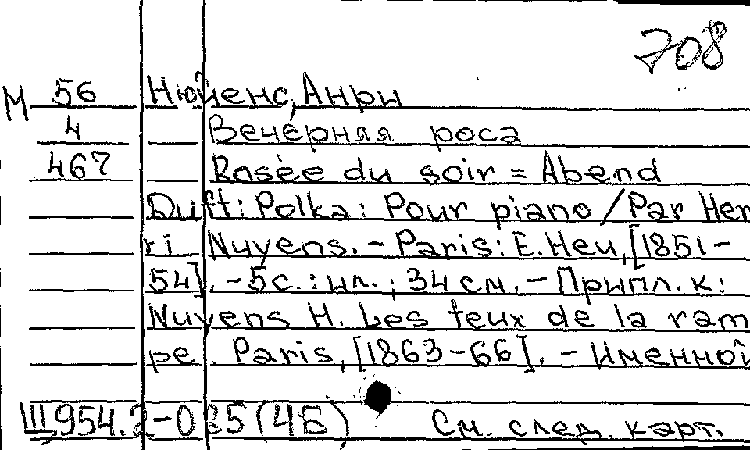 708
М 56 Нюйенс, Анри
4 Вечерняя роса
467 Rosée du soir = Abend
Duft: Polka: Pour piano / Par Hen
ri Nuyens. - Paris: E. Heu, [1851-
54]. - 5 с.: ил.; 34 см. - Припл. к:
Nuyens H. Les feux de la ram
pe. Paris, [1863-66]. - Именной
Ш954.2-035(4Б) См. след. карт.